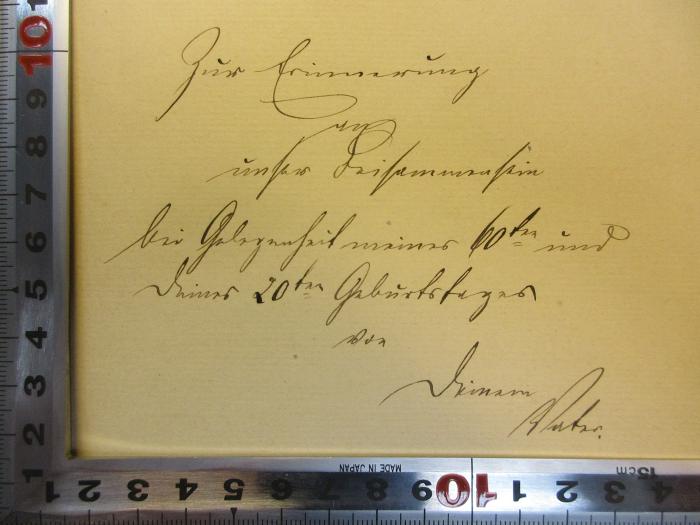 Zur Erinnerung
an
unser Beisammensein
bei Gelegenheit meines 60ten und
Deines 20ten Geburtstages
von
Deinem
Vater.
10
9
8
7
6
5
4
3
2
1
1 2 3 4 5 6 7 8 9 10 1 2 3 4
MADE IN JAPAN
15cm